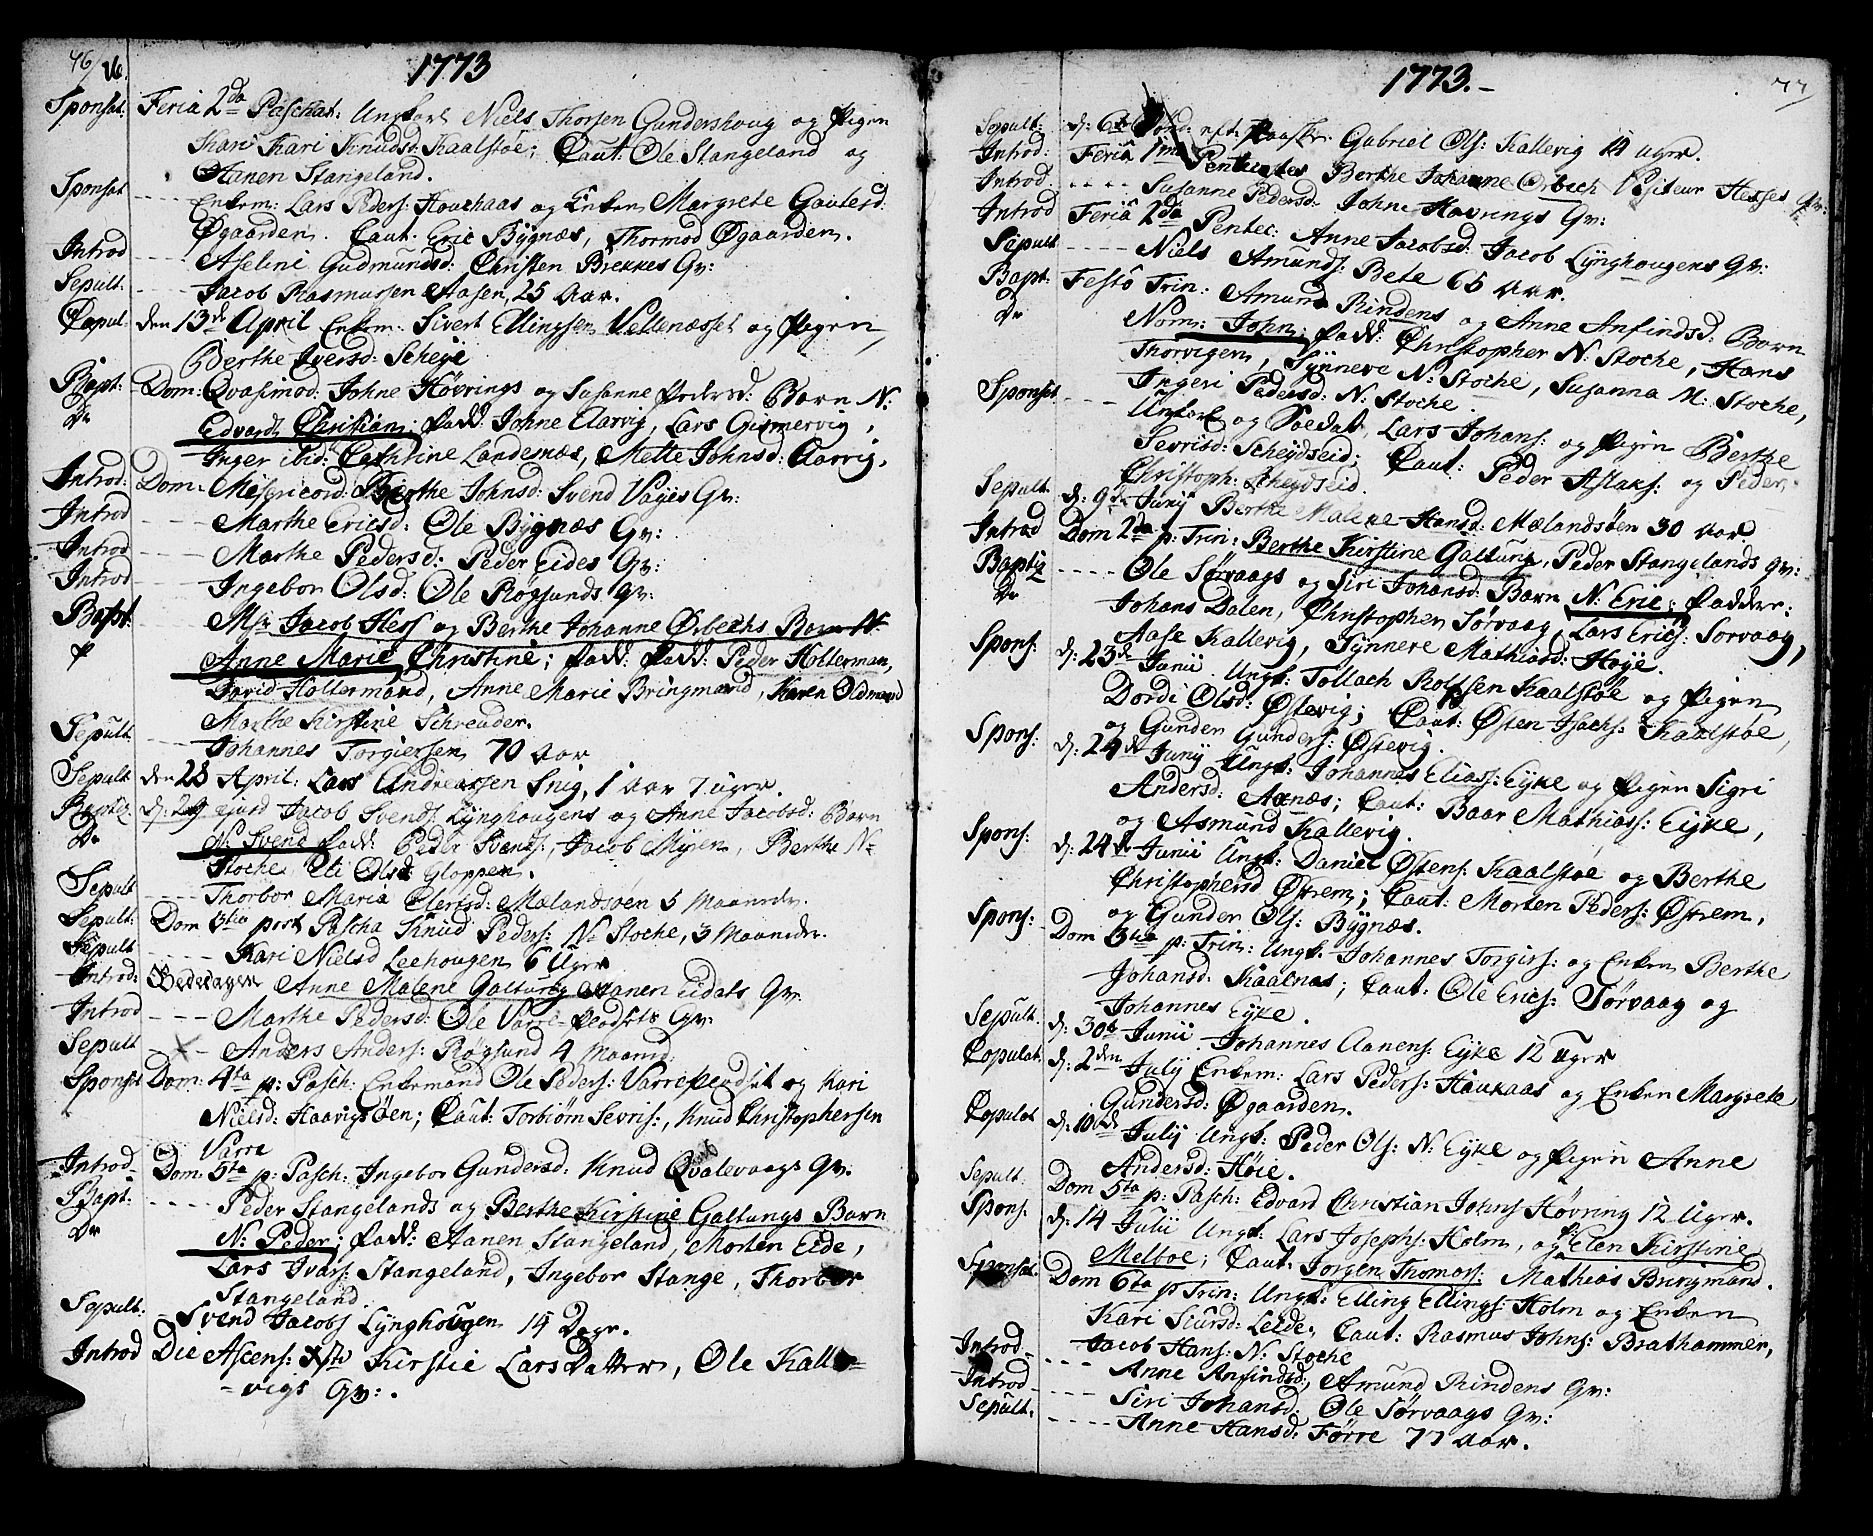 76/
1773
Sponsat. Feria 2da Paschat: Unkarl Niels Thorsen Gundershoug og Pigen
Kari Kari Knudsd: Kaalstøe; Caut: Ole Stangeland og
Aanen Stangeland.
Sponsat ---- Enkem: Lars Peders: Houchaas og Enken Margrete Gautesd:
Øgaarden. Caut. Eric Bygnæs, Thormod Øgaarden.
Introd ---- Aseline Gudmundsd: Christen Brekkes Qv:
Sepult. ---- Jacob Rasmussen Aasen, 25 Aar.
Copul. den 13de April Enkem: Sivert Ellingsen Vellenæsset og Pigen
Berthe Iversd: Scheie
Bapt: Dom: Qvasimod: Johne Høvrings og Susanne Pedersd: Barn N:
Do Edvard Christian; Fadd: Johne Aarvig, Lars Gismervig,
Inger ibid: Cathrine Landenæs, Mette Johnsd: Aarvig.
Introd: Dom: Misericord: Berthe Johnsd: Svend Vaages Qv:
Introd ---- Marthe Ericsd: Ole Bygnæs Qv:
Introd ---- Marthe Pedersd: Peder Eides Qv:
Introd ---- Ingebor Olsd: Ole Røgsunds Qv:
Bapt. ---- Msr Jacob Hess og Berthe Johanne Ørbechs Barn N.
Anne Marie Christine; Fadd: Fadd: Peder Holterman,
David Holtermand, Anne Marie Bringmand, Karen Oldmand
Marthe Kirstine Schreuder.
Sepult. ---- Johannes Torgiersen 70 Aar
Sepult den 28 April: Lars Andreassen Snig, 1 Aar 7 uger.
Baptiz. d: 29 ejusd Jacob Svends: Lynghougens og Anne Jacobsd: Barn
Do N: Svend Fadd: Peder Svends:, Jacob Myren, Berthe N:
Stoche Eli Olsd: Gloppen.
Sepult ---- Thorbor Maria Olersd: Mælandsøen 5 Maaneder.
Sepult: Dom 3tia post Pascha Knud Peders: N: Stoche, 3 Maaneder.
Sepult ---- Kari Nielsd Leehougen 6 Uger
Introd: Bededagen Anne Malene Galtung Aanen Eidets Qv.
Introd ---- Marthe Pedersd: Ole Varre-Pladsets Qv:
Sepult ---- Anders Anders: Røgsund 4 Maaned:
Sponsat Dom: 4ta p: Pasch: Enkemand Ole Peders: Varrepladset og Kari
Nielsd: Haavigsøen; Caut: Torbiørn Sevris:, Knud Christophersen
Varre
Introd. Dom: 5ta p: Pasch: Ingebor Gundersd: Knud Qvalevaags Qv.
Bapt. ---- Peder Stangelands og Berthe Kirstine Galtungs Barn
Do N: Peder; Fadd: Aanen Stangeland, Morten Eide,
Lars Ivars: Stangeland, Ingebor Stange, Thorbor
Stangeland.
Sepult. ---- Svend Jacobs Lynghougen 14 Dage.
Introd Die Ascens: Xsti Kirstie Larsdatter, Ole Kalle-
-vigs Qv:.
1773.-
77
Sepult: d: 6te Sønd: eft: Paaske Gabriel Ols: Kallevig 14 uger.
Introd: Feria 1ma Pentecostes Berthe Johanne Ørbech Visiteur Hesses Qv:
Introd ---- Susanne Pedersd: Johne Høvrings Qv:
Introd Feria 2da Pentec: Anne Jacobsd: Jacob Lynghougens Qv:
Sepult ---- Niels Amunds: Bete 65 Aar.
Bapt: Festo Trin: Amund Rindens og Anne Anfindsd: Barn
Do Nom: John; Fadd: Christopher N: Stoche, Hans
Thorvigen, Synneve N: Stoche, Susanna M: Stoche,
Ingeri Pedersd: N: Stoche.
Sponsat ---- Unkarl og Soldat Lars Johans: og Pigen Berthe
Sevrisd: Scheydseid; Caut: Peder Aslaks: og Peder
Christoph: Scheydseid.
Sepult. d: 9de Junij Berthe Malene Hansd: Mælandsøen 30 Aar
Introd Dom 2da p: Trin: Berthe Kirstine Galtung, Peder Stangelands Qv:
Baptiz ---- Ole Sørvaags og Siri Johansd: Barn N: Eric; Faddere:
Do Johans Dalen, Christopher Sørvaag, Lars Erics: Sørvaag,
Aase Kallevig, Synnere Mathiasd: Høye.
Spons: d: 23de Junii Ungk: Tollach Rolfsen Kaalstøe og Pigen
Dordi Olsd: Østevig; Caut: Østen Isachs: Kaalstøe,
og Gunder Gunders: Østevig.
Spons: d: 24de Junij Ungk: Johannes Elias: Eyke og Pigen Sigri
Andersd: Axnæs; Caut: Baar Mathias: Eyke,
og Asmund Kallevig.
Spons: d: 24de Junii Ungk: Daniel Østens: Kaalstøe og Berthe
Christophersd Østrem; Caut: Morten Peders: Østrem,
og Gunder Ols: Bygnæs.
Spons: Dom 3tia p: Trin: Ungk. Johannes Torgirs: og Enken Berthe
Johansd: Kaalnas; Caut: Ole Erics: Sørvaag og
Johannes Eyke.
Sepult. d: 30te Junii Johannes Aanens: Eyke 12 Uger
Copulat. d: 2den July Enkem: Lars Peders: Haukaas og Enken Margrete
Gundersd: Øgaarden.
Copulat d: 10de July Ungk: Peder Ols: N: Eyke og Pigen Anne
Andersd: Høie.
Sepult. Dom 5ta p: Pasch: Edvard Christian Johns Høvring 12 Uger.
Spons. d: 14 Julii Ungk: Lars Josephs: Holm, og Elen Kirstine
Meltoe; Caut: Jorgen Thomas: Mathias Bringmand.
Sponsat. Dom 6ta p Trin: Ungk: Elling Ellings: Holm og Enken
Kari Siursd: Leide, Caut: Rasmus Johns: Brathammer,
Jacob Hans: N: Stoche
Introd- ---- Anne Anfindsd, Amund Rindens Qv:
Introd- ---- Siri Johansd: Ole Sørvaags Qv:
Sepult. ---- Anne Hansd: Førre 77 Aar.